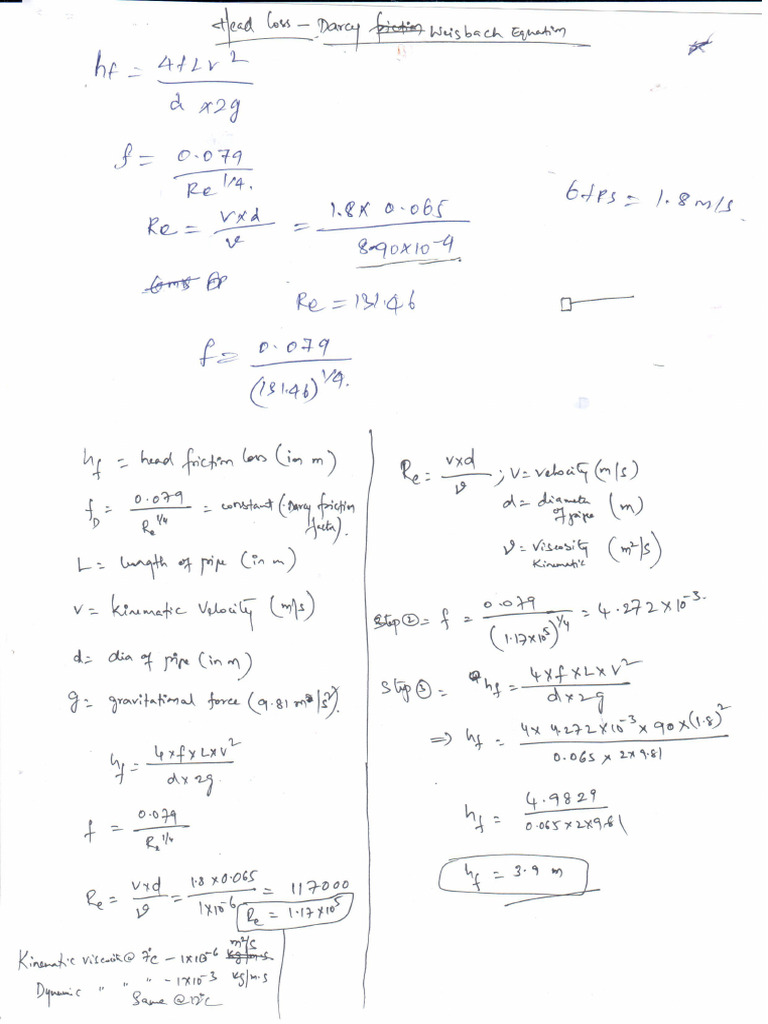 Head loss - Darcy friction Weisbach Equation
hf = 4fLv² / d x2g
f = 0.079 / Re^1/4.
Re = vxd / ν = 1.8x 0.065 / 8.90x10^-4
6fps = 1.8 m/s
Re = 131.46
f = 0.079 / (131.46)^1/4.
hf = head friction loss (in m)
fD = 0.079 / Re^1/4 = constant (Darcy friction factor).
L = length of pipe (in m)
v = kinematic velocity (m/s)
d = dia of pipe (in m)
g = gravitational force (9.81 m/s²).
hf = 4xfxLxv² / dx2g
f = 0.079 / Re^1/4
Re = vxd / ν = 1.8x0.065 / 1x10^-6 = 117000
Re = 1.17x10^5
Kinematic viscosity @ 7°c - 1x10^-6 m²/s kg/m.s
Dynamic " " " - 1x10^-3 kg/m.s
Same @
Re = vxd / ν ; V = velocity (m/s)
d = diameter of pipe (m)
ν = viscosity Kinematic (m²/s)
Step ② = f = 0.079 / (1.17x10^5)^1/4 = 4.272x10^-3.
Step ③ = hf = 4xfxLxv² / dx2g
⇒ hf = 4x 4.272x10^-3 x 90x(1.8)² / 0.065 x 2x9.81
hf = 4.9829 / 0.065x2x9.81
hf = 3.9 m